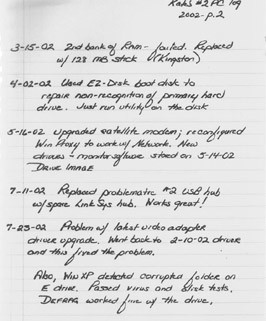 Rate's #2 PC log
2002 - p.2
3-15-02 2nd bank of Rmm - failed. Replaced
w/ 128 MB stick (Kingston)
4-02-02 Used EZ-Disk boot disk to
repair non-recognition of primary hard
drive. Just run utility on the disk
5-16-02 Upgraded satellite modem; reconfigured
Win Proxy to work w/ Network. New
drivers + monitor software stored on 5-14-02
DRIVE IMAGE
7-11-02 Replaced problematic #2 USB hub
w/ spare Link Sys hub. Works great!
7-23-02 Problem w/ latest video adapter
driver upgrade. Went back to 2-10-02 driver
and this fixed the problem.
Also, Win XP detected corrupted folder on
E drive. Passed virus and disk tests.
DEFRAG worked fine w/ the drive.